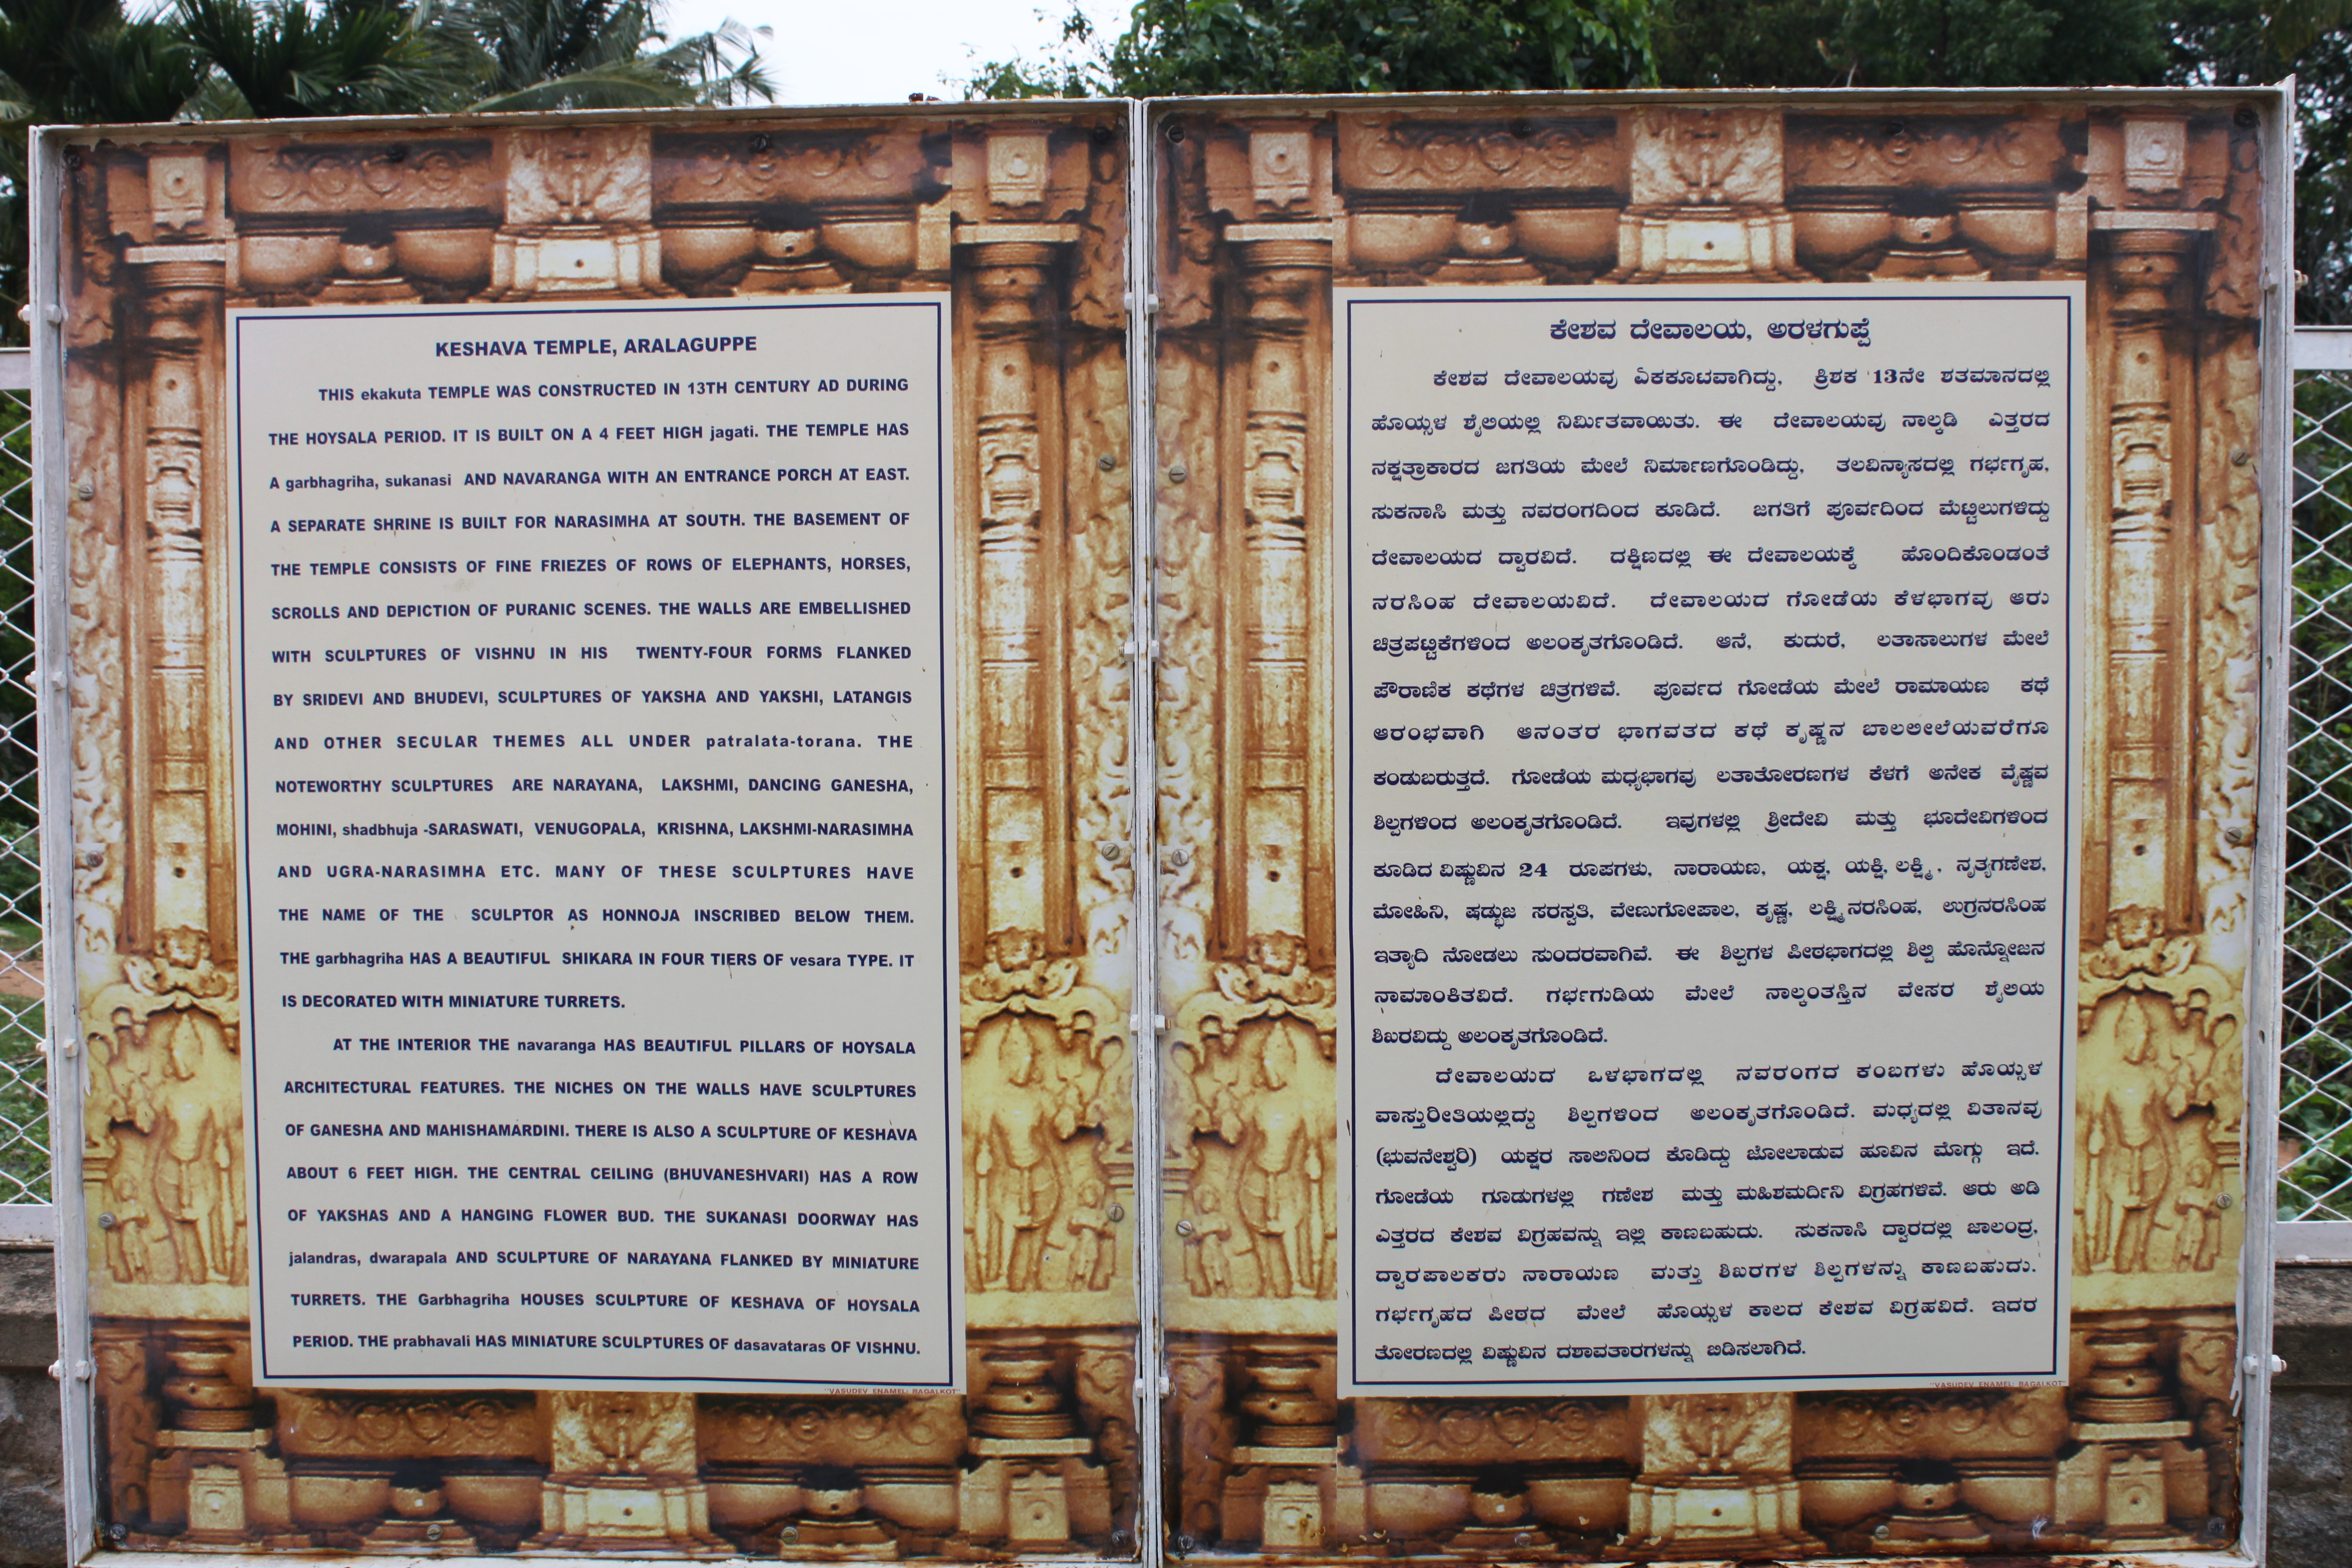 KESHAVA TEMPLE, ARALAGUPPE
THIS ekakuta TEMPLE WAS CONSTRUCTED IN 13TH CENTURY AD DURING
THE HOYSALA PERIOD. IT IS BUILT ON A 4 FEET HIGH jagati. THE TEMPLE HAS
A garbhagriha, sukanasi AND NAVARANGA WITH AN ENTRANCE PORCH AT EAST.
A SEPARATE SHRINE IS BUILT FOR NARASIMHA AT SOUTH. THE BASEMENT OF
THE TEMPLE CONSISTS OF FINE FRIEZES OF ROWS OF ELEPHANTS, HORSES,
SCROLLS AND DEPICTION OF PURANIC SCENES. THE WALLS ARE EMBELLISHED
WITH SCULPTURES OF VISHNU IN HIS TWENTY-FOUR FORMS FLANKED
BY SRIDEVI AND BHUDEVI, SCULPTURES OF YAKSHA AND YAKSHI, LATANGIS
AND OTHER SECULAR THEMES ALL UNDER patralata-torana. THE
NOTEWORTHY SCULPTURES ARE NARAYANA, LAKSHMI, DANCING GANESHA,
MOHINI, shadbhuja -SARASWATI, VENUGOPALA, KRISHNA, LAKSHMI-NARASIMHA
AND UGRA-NARASIMHA ETC. MANY OF THESE SCULPTURES HAVE
THE NAME OF THE SCULPTOR AS HONNOJA INSCRIBED BELOW THEM.
THE garbhagriha HAS A BEAUTIFUL SHIKARA IN FOUR TIERS OF vesara TYPE. IT
IS DECORATED WITH MINIATURE TURRETS.
AT THE INTERIOR THE navaranga HAS BEAUTIFUL PILLARS OF HOYSALA
ARCHITECTURAL FEATURES. THE NICHES ON THE WALLS HAVE SCULPTURES
OF GANESHA AND MAHISHAMARDINI. THERE IS ALSO A SCULPTURE OF KESHAVA
ABOUT 6 FEET HIGH. THE CENTRAL CEILING (BHUVANESHVARI) HAS A ROW
OF YAKSHAS AND A HANGING FLOWER BUD. THE SUKANASI DOORWAY HAS
jalandras, dwarapala AND SCULPTURE OF NARAYANA FLANKED BY MINIATURE
TURRETS. THE Garbhagriha HOUSES SCULPTURE OF KESHAVA OF HOYSALA
PERIOD. THE prabhavali HAS MINIATURE SCULPTURES OF dasavataras OF VISHNU.
"VASUDEV ENAMEL: BAGALKOT"
ಕೇಶವ ದೇವಾಲಯ, ಅರಳಗುಪ್ಪೆ
ಕೇಶವ ದೇವಾಲಯವು ಏಕಕೂಟವಾಗಿದ್ದು, ಕ್ರಿಶಕ 13ನೇ ಶತಮಾನದಲ್ಲಿ
ಹೊಯ್ಸಳ ಶೈಲಿಯಲ್ಲಿ ನಿರ್ಮಿತವಾಯಿತು. ಈ ದೇವಾಲಯವು ನಾಲ್ಕಡಿ ಎತ್ತರದ
ನಕ್ಷತ್ರಾಕಾರದ ಜಗತಿಯ ಮೇಲೆ ನಿರ್ಮಾಣಗೊಂಡಿದ್ದು, ತಲವಿನ್ಯಾಸದಲ್ಲಿ ಗರ್ಭಗೃಹ,
ಸುಕನಾಸಿ ಮತ್ತು ನವರಂಗದಿಂದ ಕೂಡಿದೆ. ಜಗತಿಗೆ ಪೂರ್ವದಿಂದ ಮೆಟ್ಟಿಲುಗಳಿದ್ದು
ದೇವಾಲಯದ ದ್ವಾರವಿದೆ. ದಕ್ಷಿಣದಲ್ಲಿ ಈ ದೇವಾಲಯಕ್ಕೆ ಹೊಂದಿಕೊಂಡಂತೆ
ನರಸಿಂಹ ದೇವಾಲಯವಿದೆ. ದೇವಾಲಯದ ಗೋಡೆಯ ಕೆಳಭಾಗವು ಆರು
ಚಿತ್ರಪಟ್ಟಿಕೆಗಳಿಂದ ಅಲಂಕೃತಗೊಂಡಿದೆ. ಆನೆ, ಕುದುರೆ, ಲತಾಸಾಲುಗಳ ಮೇಲೆ
ಪೌರಾಣಿಕ ಕಥೆಗಳ ಚಿತ್ರಗಳಿವೆ. ಪೂರ್ವದ ಗೋಡೆಯ ಮೇಲೆ ರಾಮಾಯಣ ಕಥೆ
ಆರಂಭವಾಗಿ ಆನಂತರ ಭಾಗವತದ ಕಥೆ ಕೃಷ್ಣನ ಬಾಲಲೀಲೆಯವರೆಗೂ
ಕಂಡುಬರುತ್ತದೆ. ಗೋಡೆಯ ಮಧ್ಯಭಾಗವು ಲತಾತೋರಣಗಳ ಕೆಳಗೆ ಅನೇಕ ವೈಷ್ಣವ
ಶಿಲ್ಪಗಳಿಂದ ಅಲಂಕೃತಗೊಂಡಿದೆ. ಇವುಗಳಲ್ಲಿ ಶ್ರೀದೇವಿ ಮತ್ತು ಭೂದೇವಿಗಳಿಂದ
ಕೂಡಿದ ವಿಷ್ಣುವಿನ 24 ರೂಪಗಳು, ನಾರಾಯಣ, ಯಕ್ಷ, ಯಕ್ಷಿ, ಲಕ್ಷ್ಮಿ, ನೃತ್ಯಗಣೇಶ,
ಮೋಹಿನಿ, ಷಡ್ಭುಜ ಸರಸ್ವತಿ, ವೇಣುಗೋಪಾಲ, ಕೃಷ್ಣ, ಲಕ್ಷ್ಮಿನರಸಿಂಹ, ಉಗ್ರನರಸಿಂಹ
ಇತ್ಯಾದಿ ನೋಡಲು ಸುಂದರವಾಗಿವೆ. ಈ ಶಿಲ್ಪಗಳ ಪೀಠಭಾಗದಲ್ಲಿ ಶಿಲ್ಪಿ ಹೊನ್ನೋಜನ
ನಾಮಾಂಕಿತವಿದೆ. ಗರ್ಭಗುಡಿಯ ಮೇಲೆ ನಾಲ್ಕಂತಸ್ತಿನ ವೇಸರ ಶೈಲಿಯ
ಶಿಖರವಿದ್ದು ಅಲಂಕೃತಗೊಂಡಿದೆ.
ದೇವಾಲಯದ ಒಳಭಾಗದಲ್ಲಿ ನವರಂಗದ ಕಂಬಗಳು ಹೊಯ್ಸಳ
ವಾಸ್ತುರೀತಿಯಲ್ಲಿದ್ದು ಶಿಲ್ಪಗಳಿಂದ ಅಲಂಕೃತಗೊಂಡಿದೆ. ಮಧ್ಯದಲ್ಲಿ ವಿತಾನವು
(ಭುವನೇಶ್ವರಿ) ಯಕ್ಷರ ಸಾಲಿನಿಂದ ಕೊಡಿದ್ದು ಜೋಲಾಡುವ ಹೂವಿನ ಮೊಗ್ಗು ಇದೆ.
ಗೋಡೆಯ ಗೂಡುಗಳಲ್ಲಿ ಗಣೇಶ ಮತ್ತು ಮಹಿಶಮರ್ದಿನಿ ವಿಗ್ರಹಗಳಿವೆ. ಆರು ಅಡಿ
ಎತ್ತರದ ಕೇಶವ ವಿಗ್ರಹವನ್ನು ಇಲ್ಲಿ ಕಾಣಬಹುದು. ಸುಕನಾಸಿ ದ್ವಾರದಲ್ಲಿ ಜಾಲಂದ್ರ,
ದ್ವಾರಪಾಲಕರು ನಾರಾಯಣ ಮತ್ತು ಶಿಖರಗಳ ಶಿಲ್ಪಗಳನ್ನು ಕಾಣಬಹುದು.
ಗರ್ಭಗೃಹದ ಪೀಠದ ಮೇಲೆ ಹೊಯ್ಸಳ ಕಾಲದ ಕೇಶವ ವಿಗ್ರಹವಿದೆ. ಇದರ
ತೋರಣದಲ್ಲಿ ವಿಷ್ಣುವಿನ ದಶಾವತಾರಗಳನ್ನು ಬಿಡಿಸಲಾಗಿದೆ.
"VASUDEV ENAMEL: BAGALKOT"